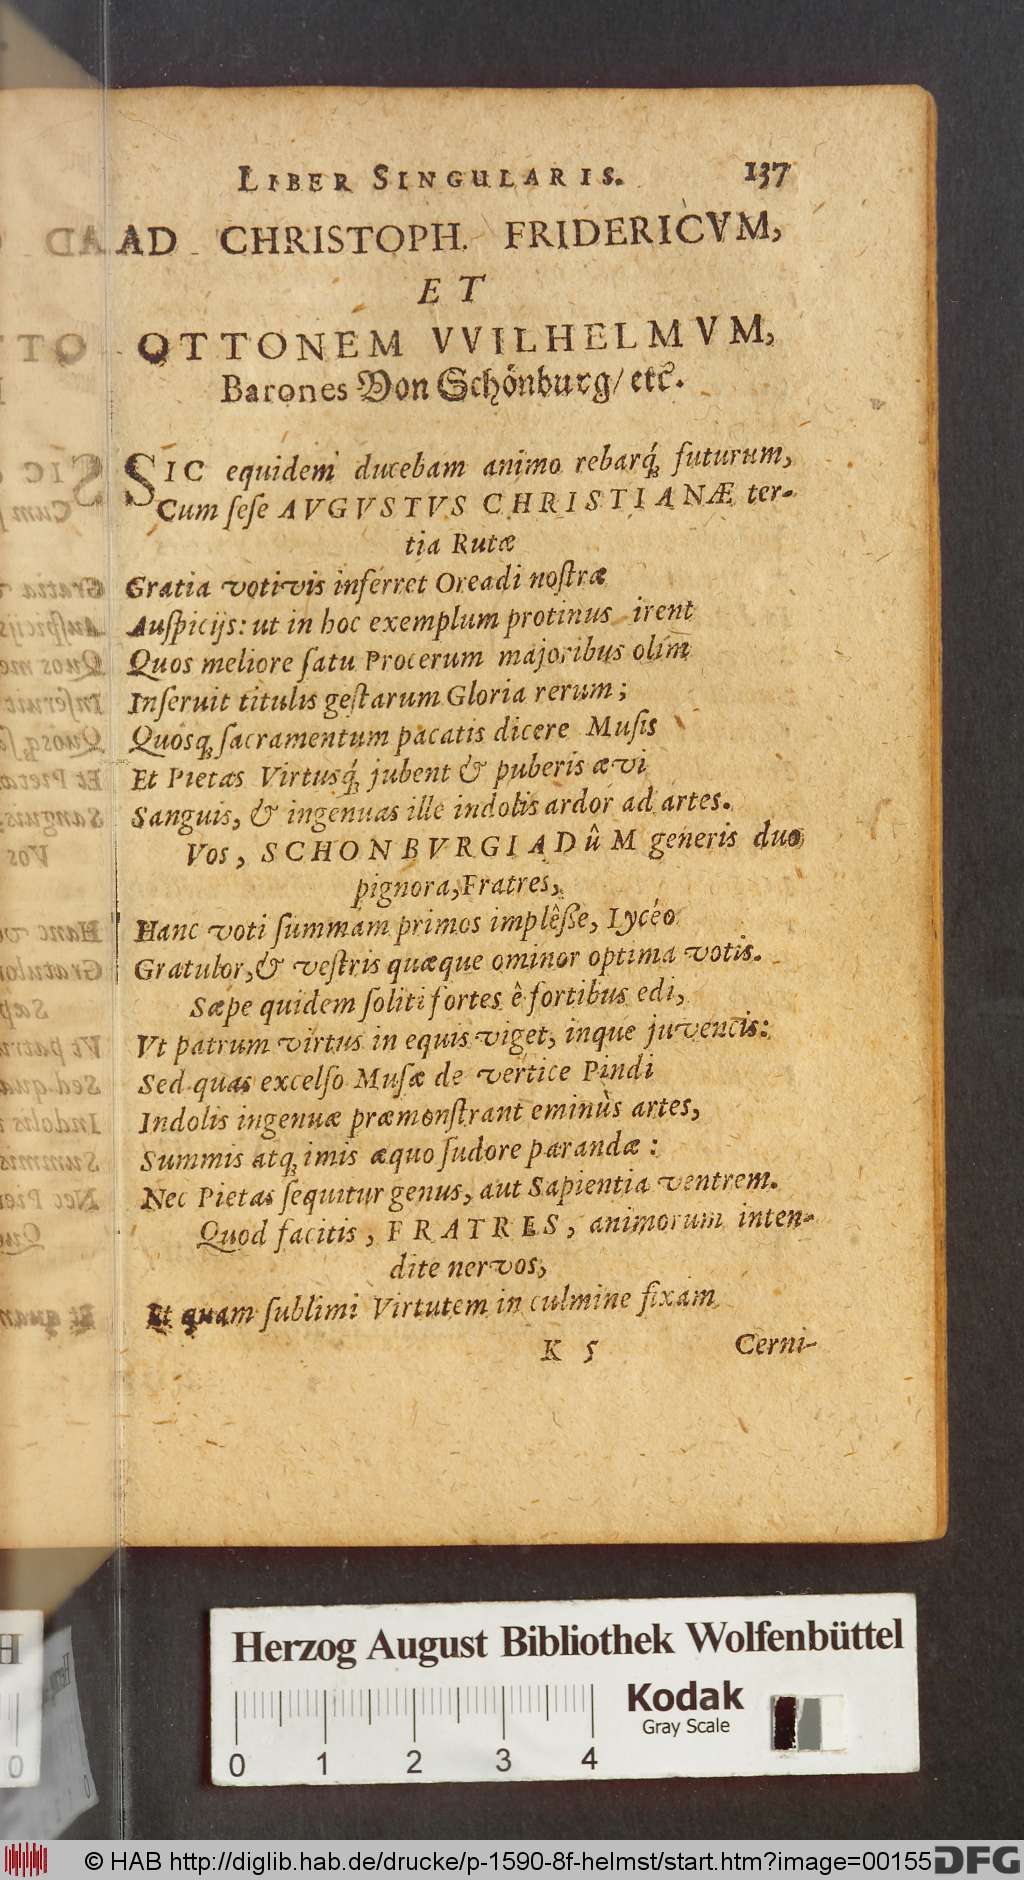 LIBER SINGULARIS. 137
AD CHRISTOPH. FRIDERICVM,
ET
OTTONEM VVILHELMVM,
Barones Von Schönburg/ etc.
SIC equidem ducebam animo rebarq́; futurum,
Cum ſeſe AVGVSTVS CHRISTIANÆ ter-
tia Rutæ
Gratia votivis inferret Oreadi noſtræ
Auſpicijs: ut in hoc exemplum protinus irent
Quos meliore ſatu Procerum majoribus olim
Inſeruit titulis geſtarum Gloria rerum;
Quosq; ſacramentum pacatis dicere Muſis
Et Pietas Virtusq́; jubent & puberis ævi
Sanguis, & ingenuas ille indolis ardor ad artes.
Vos, SCHONBVRGIADûM generis duo
pignora, Fratres,
Hanc voti ſummam primos implêſſe, Lycéo
Gratulor, & veſtris quæque ominor optima votis.
Sæpe quidem ſoliti fortes ê fortibus edi,
Vt patrum virtus in equis viget, inque juvencis:
Sed quas excelſo Muſæ de vertice Pindi
Indolis ingenuæ præmonſtrant eminùs artes,
Summis atq; imis æquo ſudore parandæ:
Nec Pietas ſequitur genus, aut Sapientia ventrem.
Quod facitis, FRATRES, animorum inten-
dite nervos,
Et quam ſublimi Virtutem in culmine fixam
K 5 Cerni-
Herzog August Bibliothek Wolfenbüttel
Kodak
Gray Scale
0 1 2 3 4
© HAB http://diglib.hab.de/drucke/p-1590-8f-helmst/start.htm?image=00155
DFG